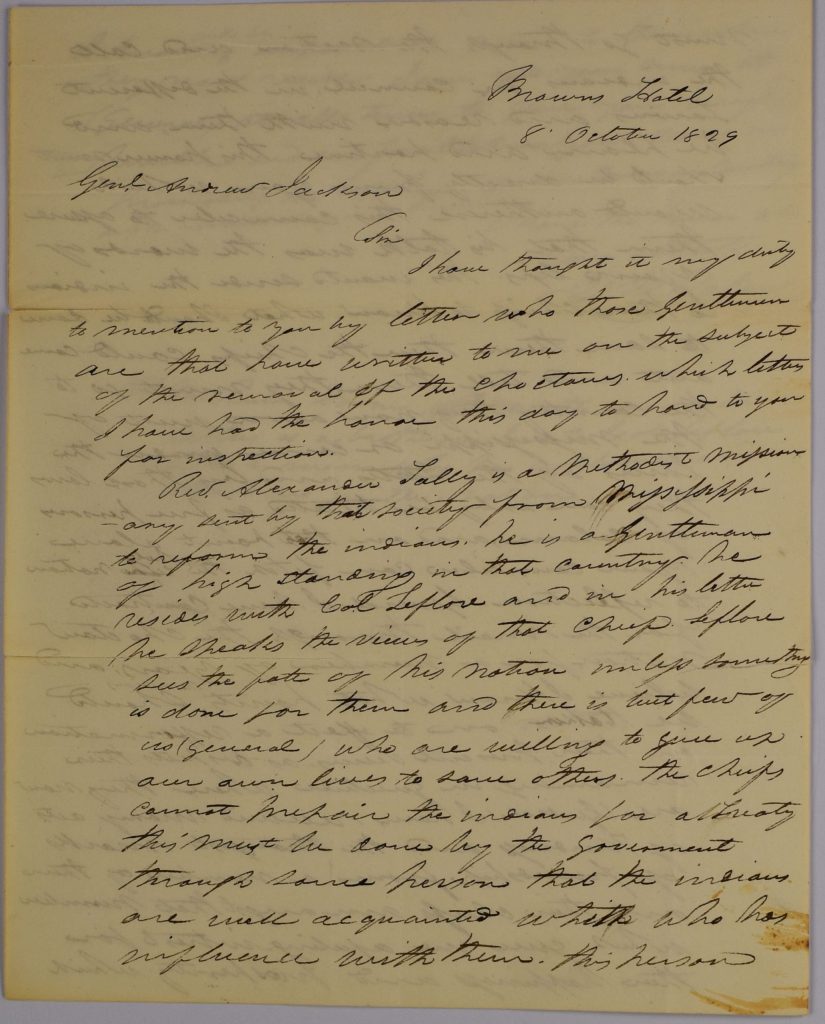 Browns Hotel
8' October 1829
Genl. Andrew Jackson
Sir
I have thought it my duty
to mention to you by letter who those Gentlemen
are that have written to me on the subject
of the removal of the Choctaws. which letters
I have had the honor this day to hand to you
for inspection.
Rev. Alexander Tally is a Methodist mission-
-any sent by that society from Mississippi
to reform the indians. he is a Gentleman
of high standing in that country. he
resides with Col Leflore and in his letter
he speaks the views of that Chief. Leflore
sees the fate of his nation unless something
is done for them and there is but few of
us (General) who are willing to give up
our own lives to save others. the chiefs
cannot prepair the indians for a treaty
this must be done by the Goverment
through some person that the indians
are well acquainted with who has
influence with them. this person